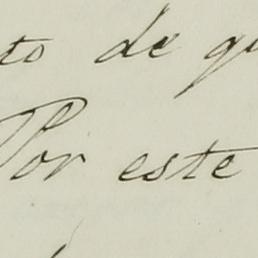 to de qu
Por este